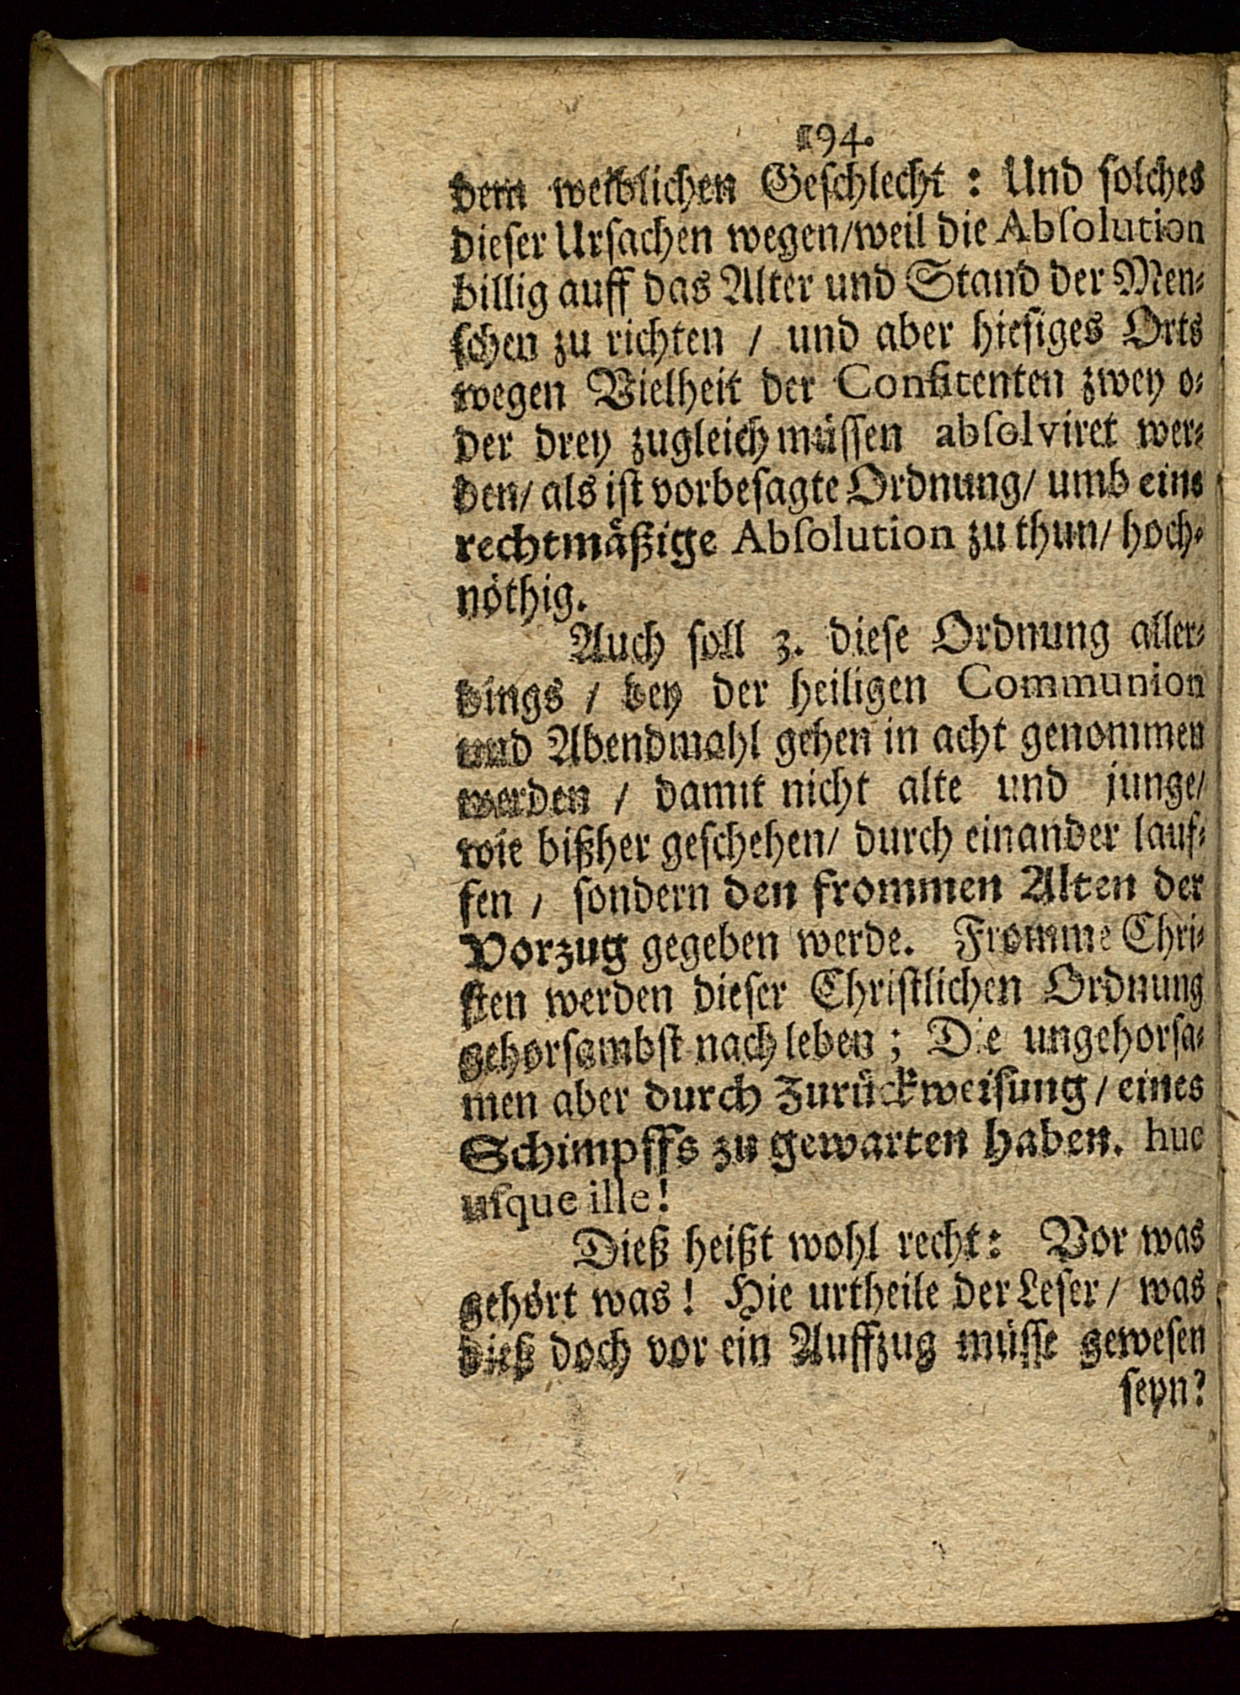 194.
dem weiblichen Geschlecht: Und solches
dieser Ursachen wegen/weil die Absolution
billig auff das Alter und Stand der Men-
schen zu richten / und aber hiesiges Orts
wegen Vielheit der Confitenten zwey o-
der drey zugleich müssen absolviret wer-
den/ als ist vorbesagte Ordnung/ umb eine
rechtmäßige Absolution zu thun/ hoch-
nöthig.
Auch soll 3. diese Ordnung aller-
dings / bey der heiligen Communion
und Abendmahl gehen in acht genommen
werden / damit nicht alte und junge/
wie bißher geschehen/ durch einander lauf-
fen / sondern den frommen Alten der
Vorzug gegeben werde. Fromme Chri-
sten werden dieser Christlichen Ordnung
gehorsambst nach leben; Die ungehorsa-
men aber durch Zurückweisung / eines
Schimpffs zu gewarten haben. huc
usque ille!
Dieß heißt wohl recht: Vor was
gehört was! Hie urtheile der Leser / was
dieß doch vor ein Auffzug müsse gewesen
seyn?